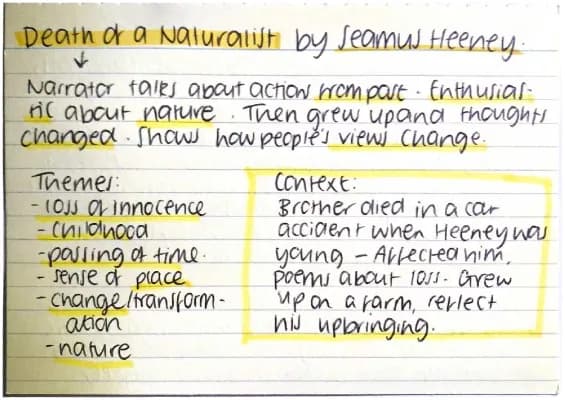 Death of a Naturalist by Seamus Heeney.
↓
Narrator talks about action from past. Enthusias-
tic about nature. Then grew up and thoughts
changed. Shows how people's views change.
Themes:
- loss of innocence
- Childhood
- passing of time.
- sense of place
- change/transform-
ation
- nature
Context:
Brother died in a car
accident when Heeney was
young - Affected him,
poems about loss. Grew
up on a farm, reflect
his upbringing.